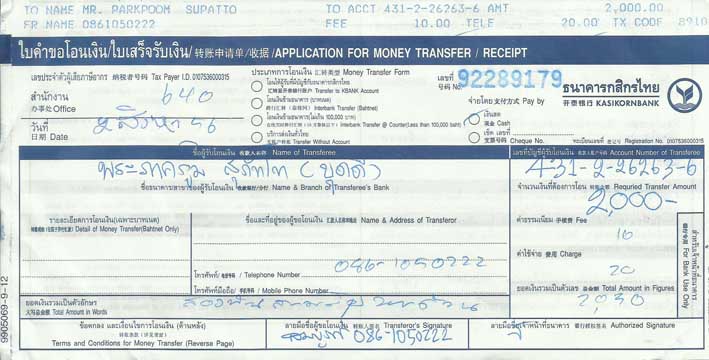 TO NAME MR. PARKPOOM SUPATTO TO ACCT 431-2-26263-6 AMT 2,000.00
FR NAME 0861050222 FEE 10.00 TELE 20.00 TX CODE 8910
ใบคำขอโอนเงิน/ใบเสร็จรับเงิน/转账申请单/收据/APPLICATION FOR MONEY TRANSFER / RECEIPT
เลขประจำตัวผู้เสียภาษีอากร 纳税者号码 Tax Payer I.D. 0107536000315
ประเภทการโอนเงิน 汇转类型 Money Transfer Form
เลขที่ 号码 No. 92289179
ธนาคารกสิกรไทย
开泰银行 KASIKORNBANK
สำนักงาน
办事处 Office 640
โอนให้ผู้รับที่มีบัญชีกับธนาคารกสิกรไทย
Transfer to KBANK Account
โอนเงินข้ามธนาคาร (บาทเนต)
Interbank Transfer (Bahtnet)
โอนเงินข้ามธนาคาร (ไม่เกิน 100,000 บาท)
Interbank Transfer @ Counter(Less than 100,000 baht)
บริการส่งเงินด่วน
Transfer Without Account
จ่ายโดย 支付方式 Pay by
เงินสด
现金 Cash
เช็ค เลขที่
支票号码 Cheque No.
ทะเบียนเลขที่ Registration No. 0107536000315
วันที่
日期 Date 2 สิงหา 56
ชื่อผู้รับโอนเงิน 收款人名称 Name of Transferee
เลขที่บัญชีผู้รับโอนเงิน Account Number of Transferee
พระภาคภูมิ สุภัทโท
431-2-26263-6
ชื่อธนาคาร/สาขาของผู้รับโอนเงิน 收款银行/分行 Name & Branch of Transferee's Bank
จำนวนเงินที่ต้องการโอน 转账金额 Required Transfer Amount
2,000-
รายละเอียดการโอนเงิน(เฉพาะบาทเนต)
Detail of Money Transfer(Bahtnet Only)
ชื่อและที่อยู่ของผู้ขอโอนเงิน 汇款人名称与地址 Name & Address of Transferor
ค่าธรรมเนียม 手续费 Fee
10
086-1050222
โทรศัพท์/ 电话号码 / Telephone Number
ค่าใช้จ่าย 费用 Charge
20
โทรศัพท์มือถือ/ 手机号码 / Mobile Phone Number
ยอดเงินรวมเป็นตัวอักษร
大写总金额 Total Amount in Words
ยอดเงินรวมเป็นตัวเลข 总金额 Total Amount in Figures
2,030
สำหรับเจ้าหน้าที่ธนาคาร
银行专用 For Bank Use Only
9905069-9-12
ข้อตกลง และเงื่อนไขการโอนเงิน (ด้านหลัง)
Terms and Conditions for Money Transfer (Reverse Page)
ลายมือชื่อผู้ขอโอนเงิน 转账人签名 Transferor's Signature
086-1050222
ลายมือชื่อเจ้าหน้าที่ธนาคาร 银行授权签名 Authorized Signature